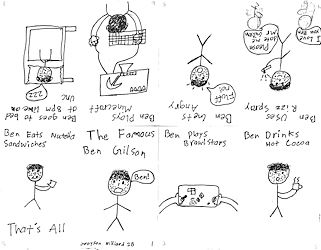 Ben goes to bed
at 8pm like an
Unc
ZZZ
Ben Plays
Minecraft
Ben Gets
Angry
Fluff
not
Ben Uses
Rizz Spray
Please
date me
I Love
you Ben
Ben Eats Nutella
Sandwiches
The Famous
Ben Gilson
Ben Plays
Brawlstars
Ben Drinks
Hot Cocoa
Ben!
That's All